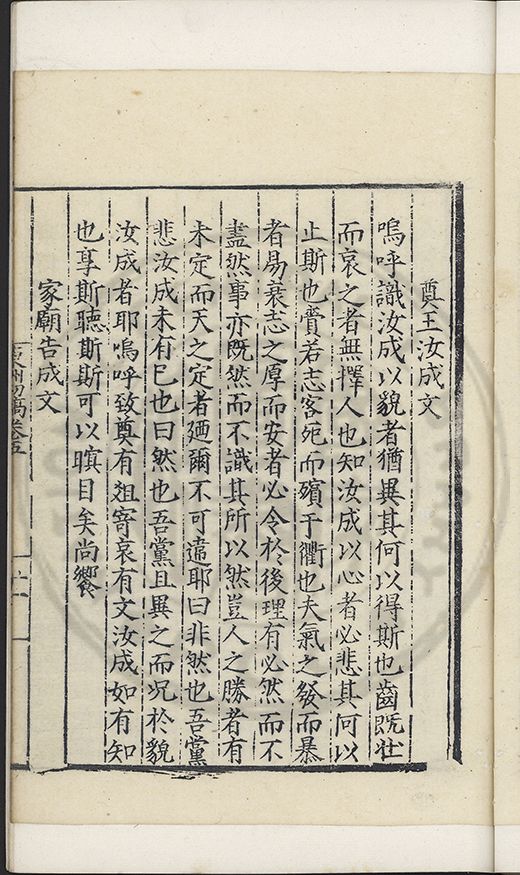 奠王汝成文
嗚呼識汝成以貌者猶異其何以得斯也齒既壯
而哀之者無擇人也知汝成以心者必悲其何以
止斯也賫若志客死而殯于衢也夫氣之發而暴
者易衰志之厚而安者必令於後理有必然而不
盡然事亦既然而不識其所以然豈人之勝者有
未定而天之定者廼爾不可違耶曰非然也吾黨
悲汝成未有已也曰然也吾黨且異之而况於貌
汝成者耶嗚呼致奠有俎寄哀有文汝成如有知
也享斯聽斯斯可以瞑目矣尚饗
家廟告成文
初稿卷五